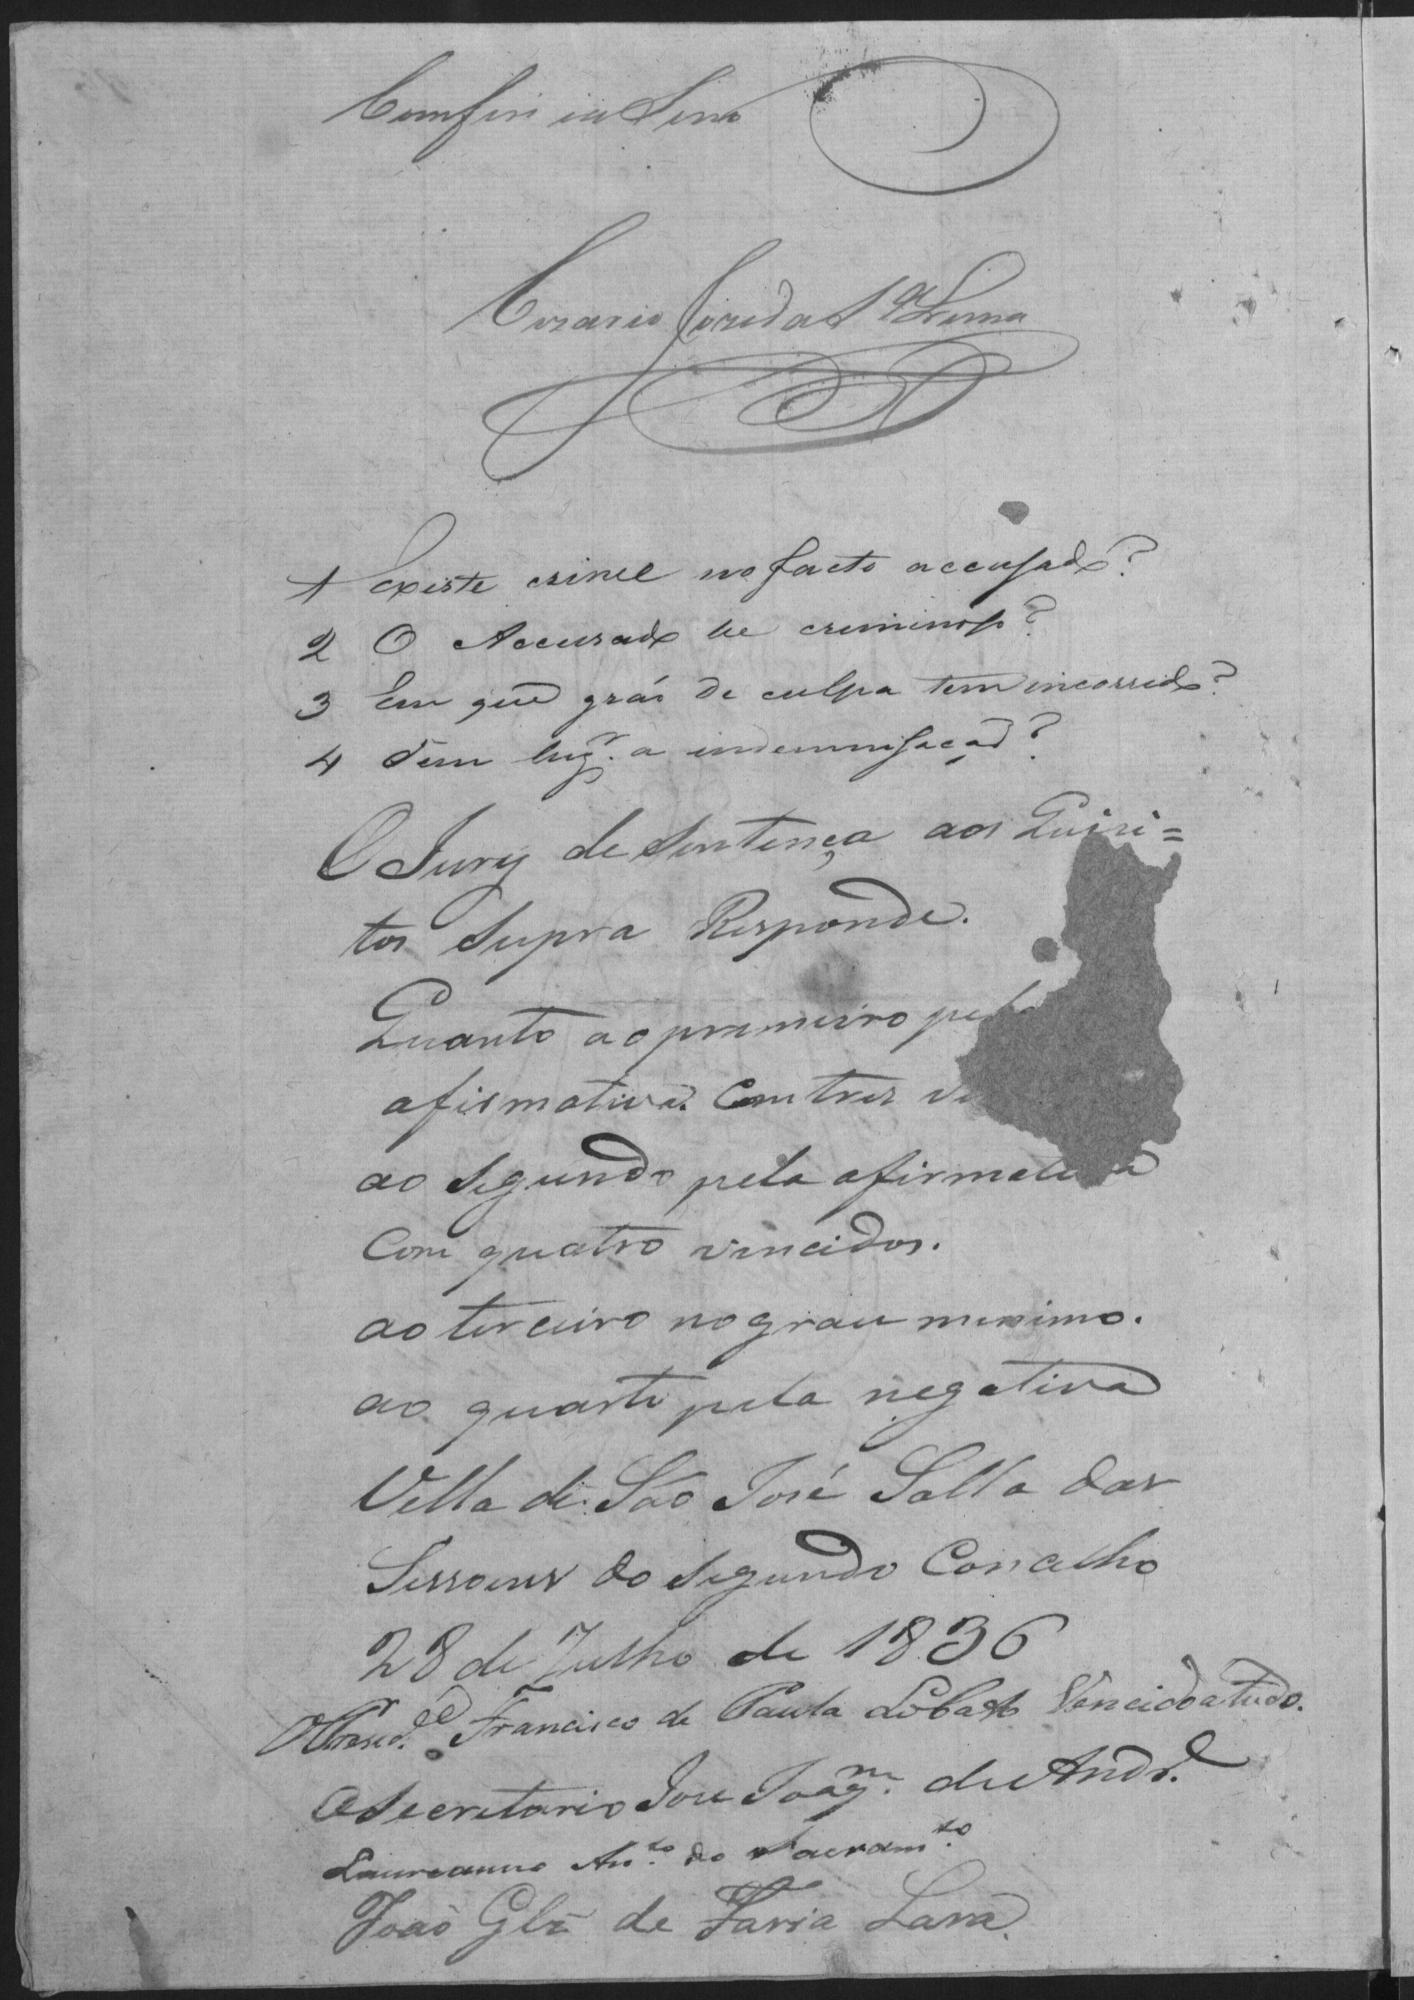 1 Existe crime no facto accusado?
2 O Accusado he criminoso?
3 Em que gráo de culpa tem incorrido?
4 Tem lugr. a indemnisação?
O Jury de Sentença aos Quisi=
tos Supra Responde.
Quanto ao primeiro pela
afirmativa. Com tres
ao Segundo pela afirmativa
Com quatro vencidos.
ao terceiro no grau minimo.
ao quarto pela negativa
Villa de São José Salla das
Sessoens do Segundo Concelho
28 de Julho de 1836
O Presid.e Francisco de Paula Lobato Vencido a tudo.
O Secretario Jose Joaqm. de Andr.e
Laureanno Anto. do Sacramto.
João Glz de Faria Lara